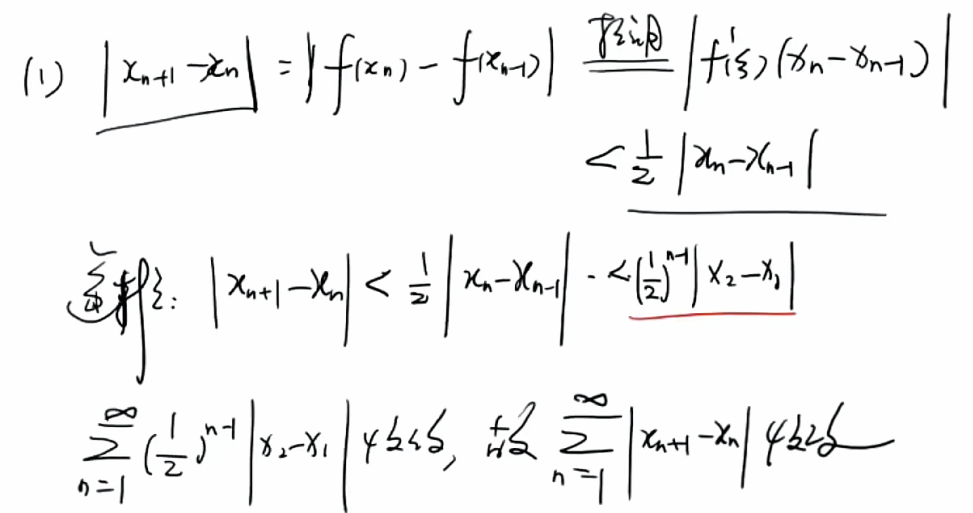 (1) |xₙ₊₁ − xₙ| = |f(xₙ) − f(xₙ₋₁)| = |f′(ξ)(xₙ − xₙ₋₁)|
< 1/2 |xₙ − xₙ₋₁|
|xₙ₊₁ − xₙ| < 1/2 |xₙ − xₙ₋₁| ·· < (1/2)ⁿ⁻¹ |x₂ − x₁|
∑_{n=1}^{∞} (1/2)ⁿ⁻¹ |x₂ − x₁| 收敛, 故 ∑_{n=1}^{∞} |xₙ₊₁ − xₙ| 收敛